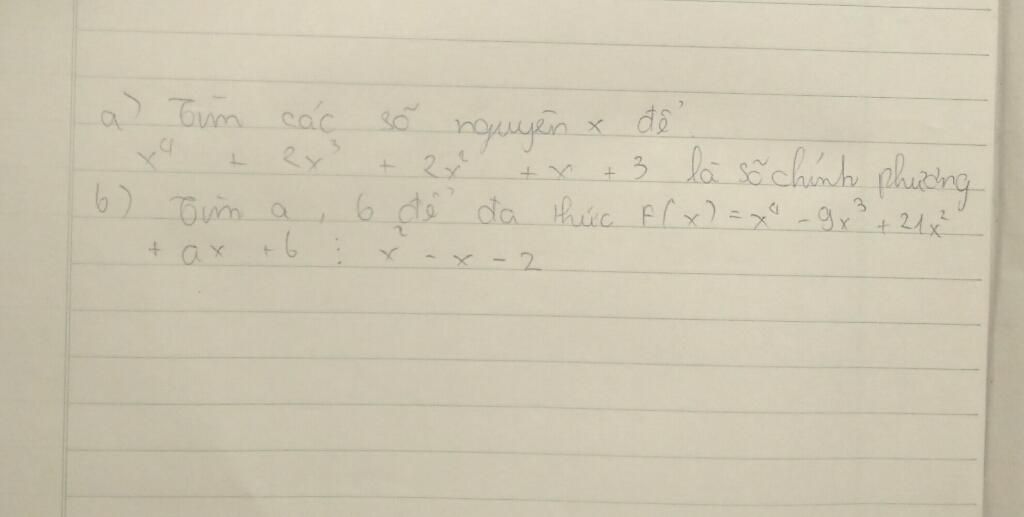 a) Tìm các số nguyên x để
x⁴ + 2x³ + 2x² + x + 3 là số chính phương
b) Tìm a, b để đa thức F(x) = x⁴ - 9x³ + 21x²
+ ax + b ⋮ x² - x - 2